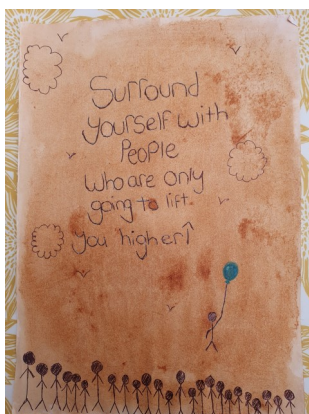 Surround
yourself with
People
who are only
going to lift
you higher↑